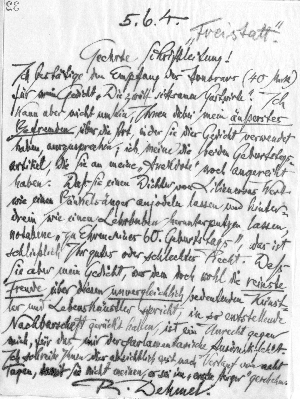 33
5.6.4.
„Freistatt".
Geehrte Schriftleitung!
Ich bestätige den Empfang des Honorars (40 Mark)
für mein Gedicht „Die zwölf
Ich
kann aber nicht umhin, Ihnen dabei mein äußerstes
Befremden über die Art, in der Sie dies Gedicht verwendet
haben, auszusprechen; ich meine die beiden Geburtstags-
artikel, die Sie an meine „Anekdote" noch angereiht
haben. Daß Sie einen Dichter von Liliencrons Wert
wie einen Bänkelsänger anjodeln lassen und hinter-
drein wie einen Lehrbuben herunterputzen lassen,
notabene „zu Ehren seines 60. Geburtstags", das ist
schließlich Ihr gutes oder schlechtes Recht. Daß
Sie aber mein Gedicht, aus dem doch wohl die reinste
Freude über diesen unvergleichlich bedeutenden Künst-
ler und Lebenskünstler spricht, in so entstellende
Nachbarschaft gerückt haben, ist ein Unrecht gegen
mich, für das mir der parlamentarische Ausdruck fehlt.
Ich schreibe Ihnen das absichtlich erst nach Verlauf von acht
Tagen, damit Sie nicht meinen, es sei im „ersten Ärger" geschehn.
R. Dehmel.